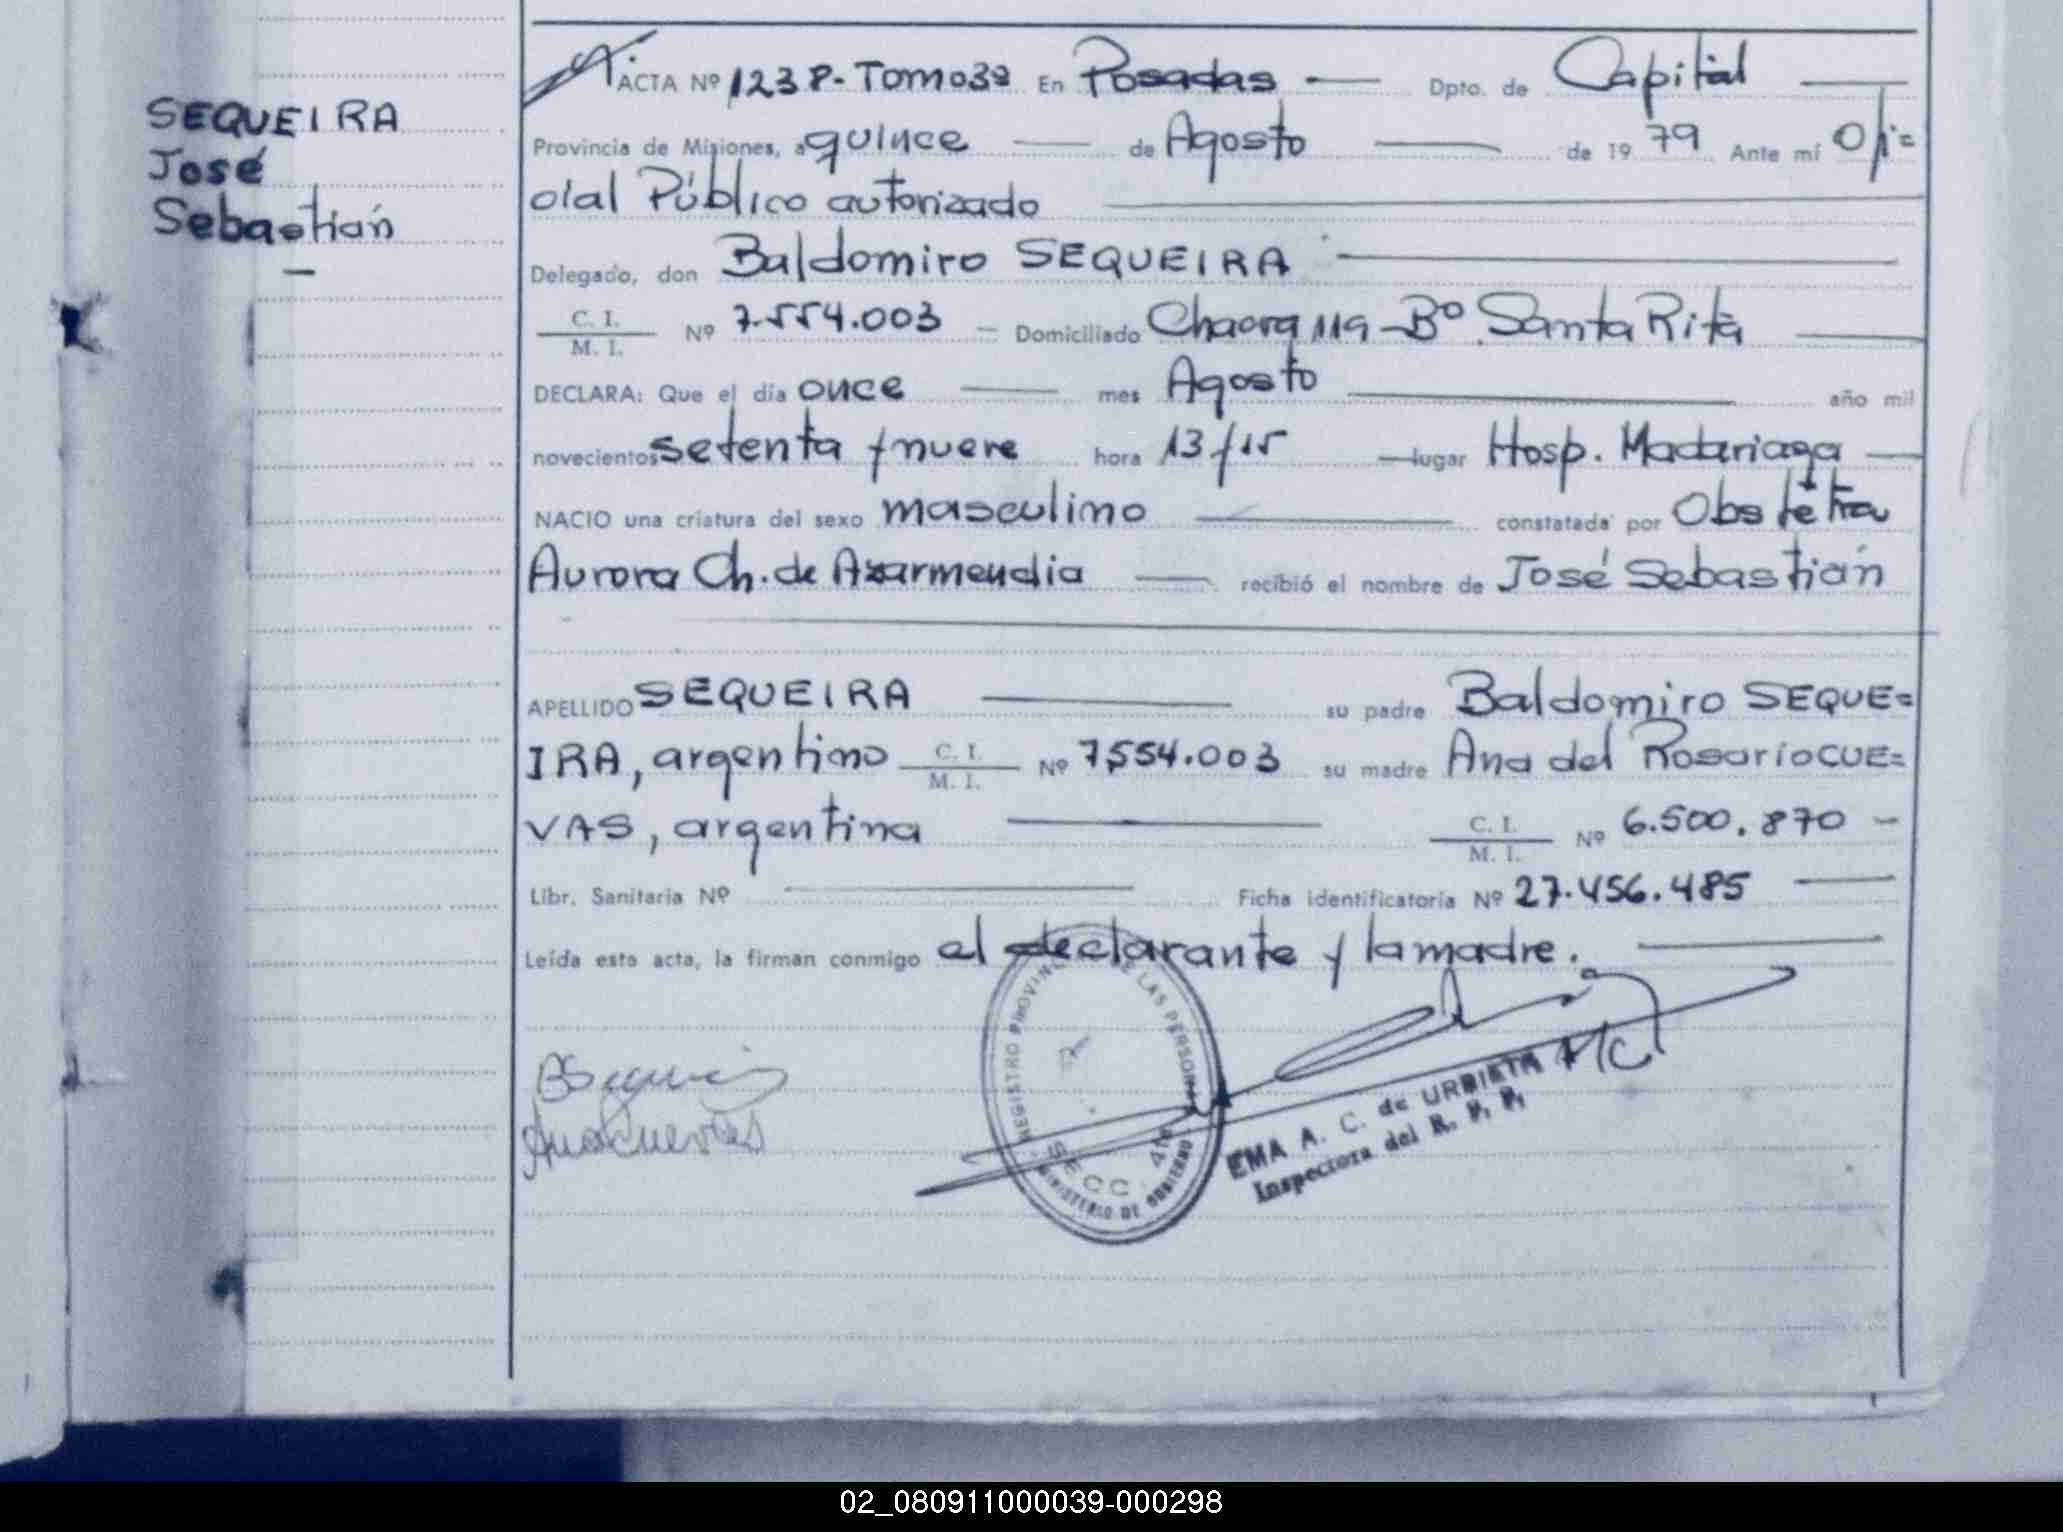 SEQUEIRA
José
Sebastián
ACTA Nº 1238-Tomo 3º En Posadas Dpto. de Capital
Provincia de Misiones, a quince de Agosto de 1979 Ante mí Ofi=
cial Público autorizado
Delegado, don Baldomiro SEQUEIRA
C. I.
M. I. Nº 7.554.003 — Domiciliado 119 - Bº Santa Rita
DECLARA: Que el día once mes Agosto año mil
novecientos setenta y nueve hora 13/15 lugar Hosp. Madariaga
NACIO una criatura del sexo masculino constatada por Obstétra
Aurora Ch. de Azarmendia recibió el nombre de José Sebastián
APELLIDO SEQUEIRA su padre Baldomiro SEQUE=
IRA, argentino C. I. M. I. Nº 7.554.003 su madre Ana del Rosario CUE=
VAS, argentina C. I. M. I. Nº 6.500.870 —
Libr. Sanitaria Nº Ficha identificatoria Nº 27.456.485
Leída esta acta, la firman conmigo el declarante y la madre.
BSequeira
Ana Cuevas
REGISTRO PROVINCIAL DE LAS PERSONAS
SECC. 4ta
MINISTERIO DE GOBIERNO
EMA A. C. de URBIETA
Inspectora del R. P. P.
02_080911000039-000298